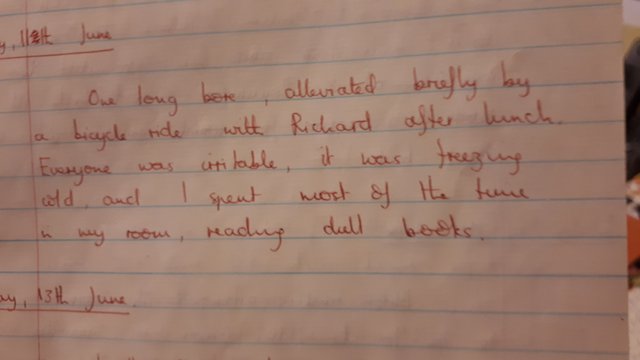 y, June
One long bore, alleviated briefly by
a bicycle ride with Richard after lunch.
Everyone was irritable, it was freezing
cold, and I spent most of the time
in my room, reading dull books.
ay, 13th June.